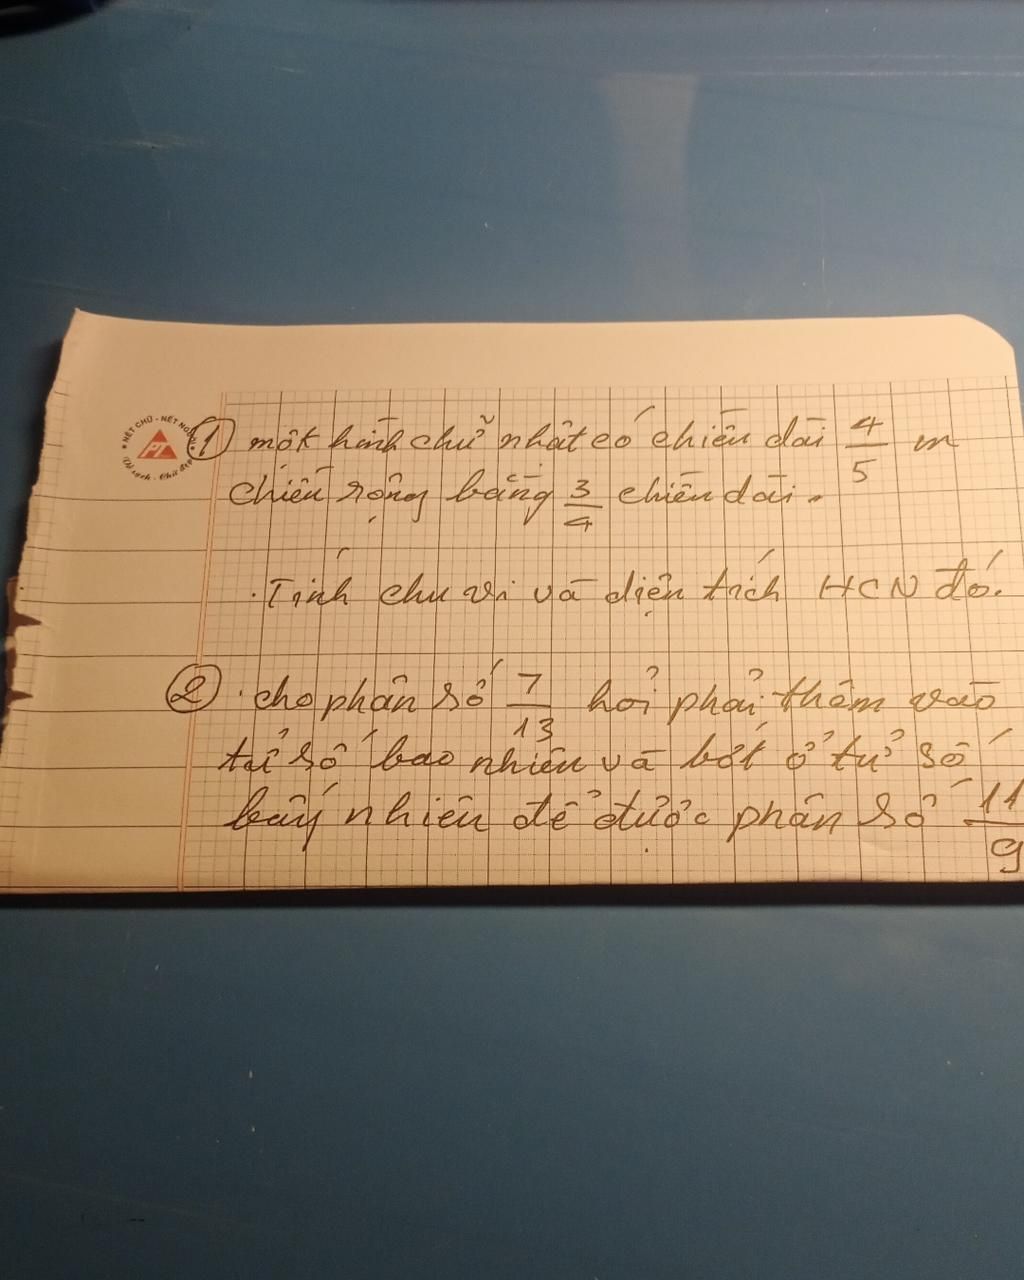 NÉT CHỮ - NẾT NGƯỜI
① một hình chữ nhật có chiều dài 4/5 m
chiều rộng bằng 3/4 chiều dài.
. Tính chu vi và diện tích HCN đó.
② . cho phân số 7/13 hỏi phải thêm vào
tử số bao nhiêu và bớt ở tử số
bấy nhiêu để được phân số 11/9